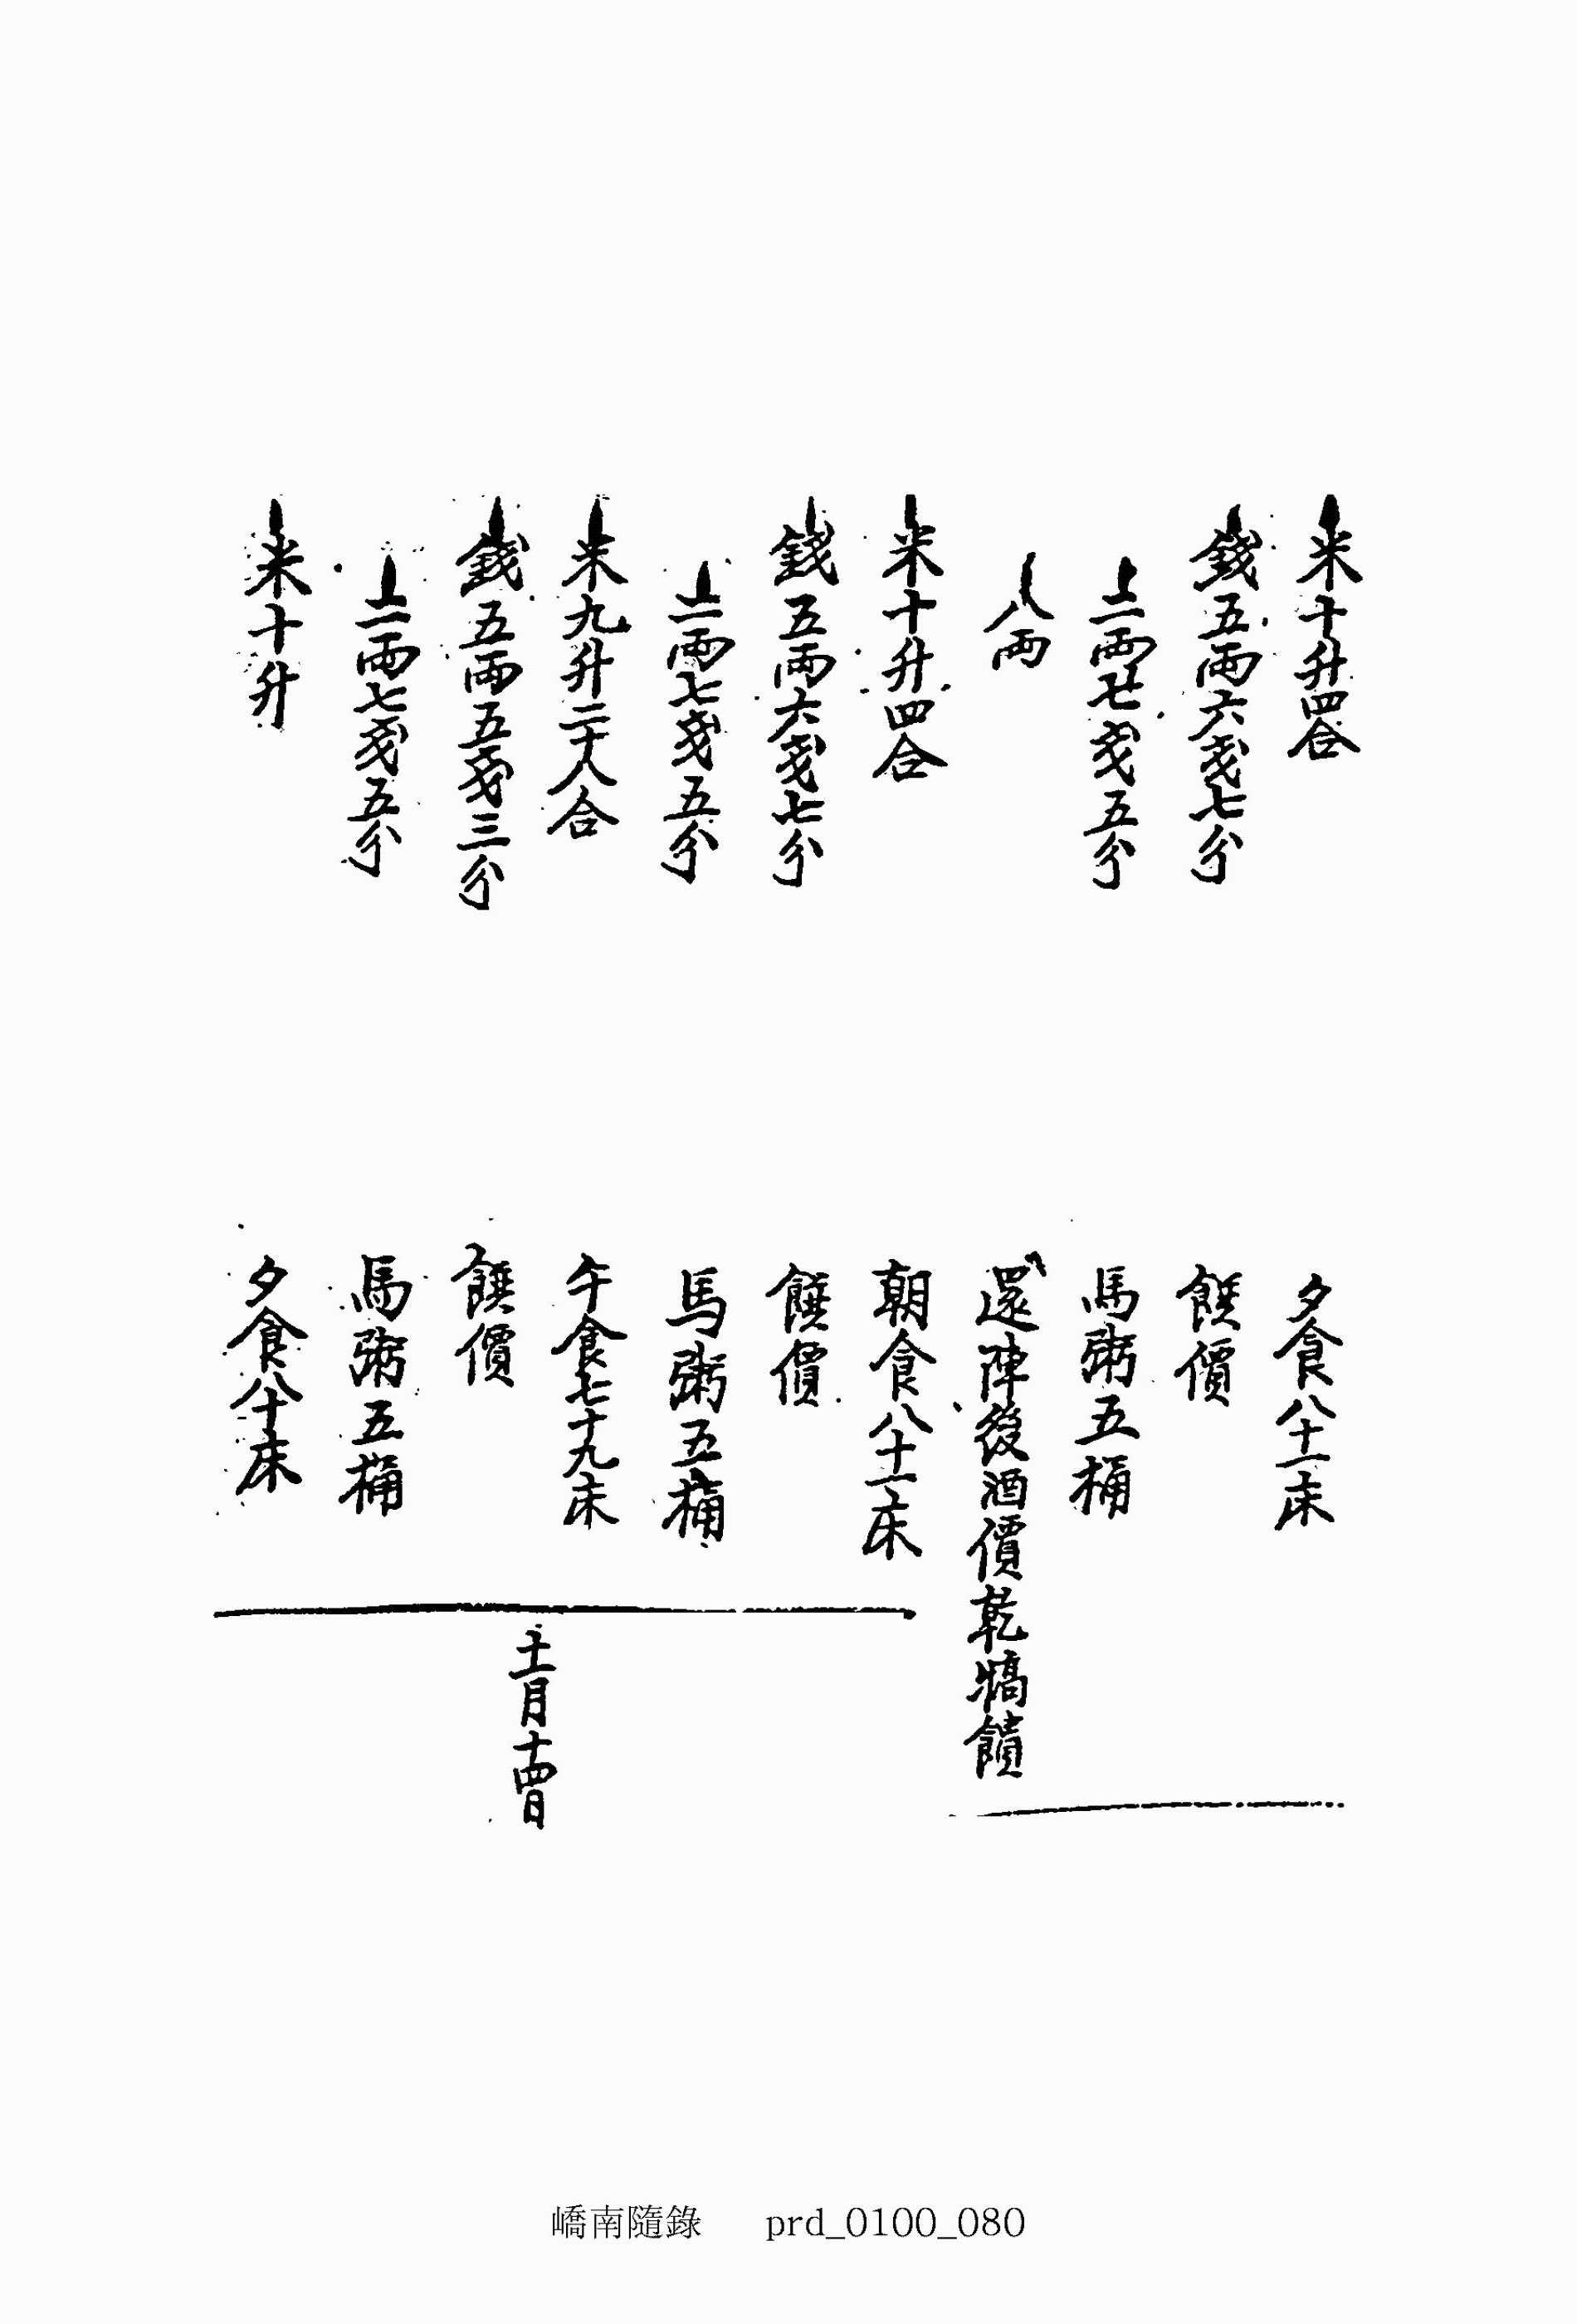 米十升四合
錢五兩六戔七分
二兩七戔五分
八兩
米十升四合
錢五兩六戔七分
二兩七戔五分
米九升二十八合
錢五兩五戔三分
二兩七戔五分
米十升
夕食八十一床
饌價
馬粥五桶
還陣後酒價乾犒饋
朝食八十一床
饌價
馬粥五桶
午食七十九床
饌價
馬粥五桶
夕食八十床
十一月十四日
嶠南隨錄 prd_0100_080